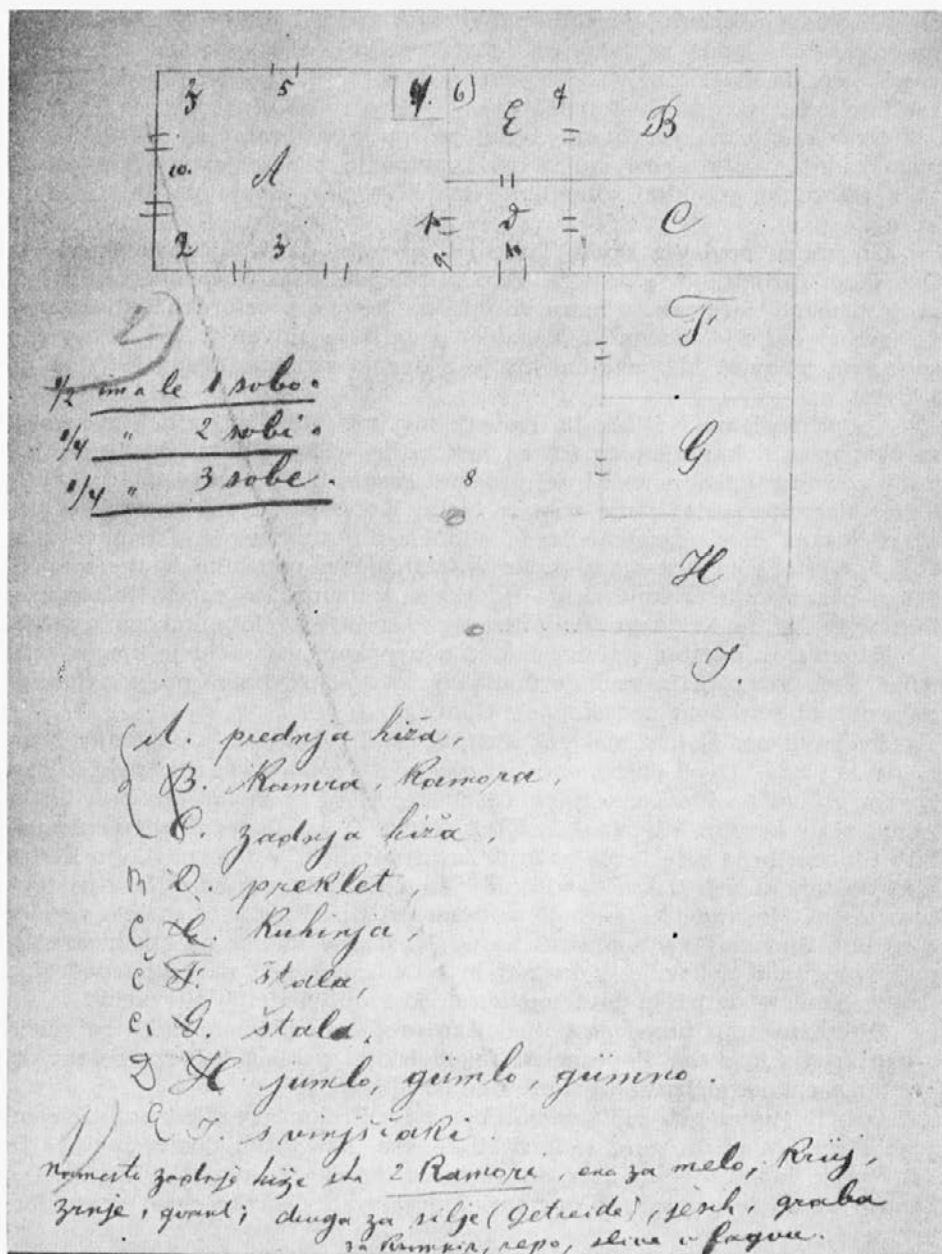 5 4. 6) 4
E B
10. A
D C
2 3
2)
F
1/2 ima le 1 sobo.
1/4 " 2 sobi.
1/4 " 3 sobe.
8
G
H
J.
A. prednja hiža,
B. Kamra, Kamora,
C. zadnja hiža,
D. preklet,
E. Kuhinja,
C F. štala,
G. štala,
D H jumlo, gumlo, gumno.
J. svinjšiaki.
1)
namesto zadnje hiže sta 2 Kamori, ena za melo, Krüj,
zrnje, gvant; druga za silje (Getreide), jesih, graba
za Krumpir, repo, sliva v fagvu.